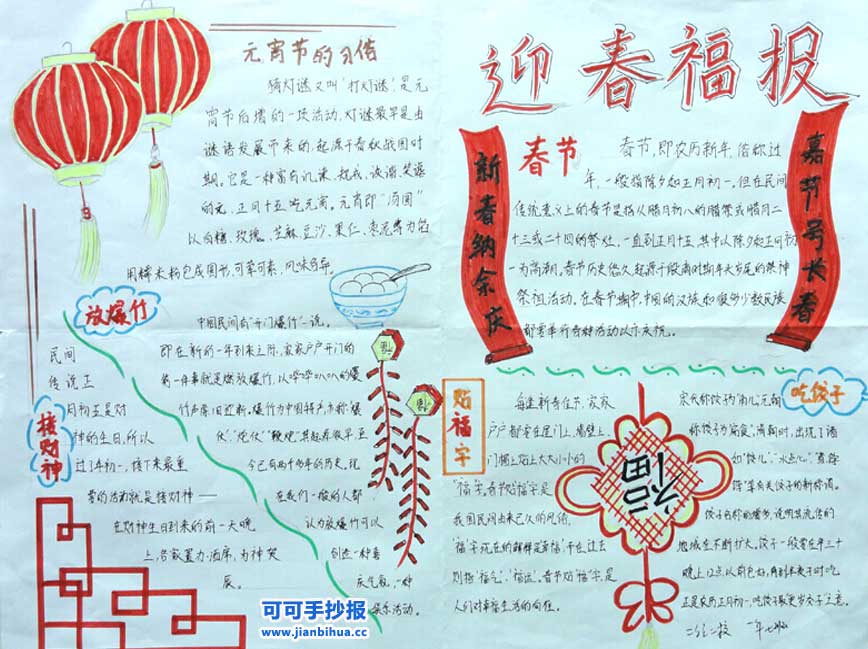 元宵节的习俗
猜灯谜又叫“打灯谜”,是元
宵节后增的一项活动,灯谜最早是由
谜语发展而来的,起源于春秋战国时
期。它是一种富有讥谏、规戒、诙谐、笑谑
的元。正月十五吃元宵。元宵即“汤圆”
以白糖、玫瑰、芝麻、豆沙、果仁、枣泥等为馅
用糯米粉包成圆形,可荤可素,风味各异。
迎春福报
新春纳余庆
嘉节号长春
春节
春节,即农历新年,俗称过
年,一般指除夕和正月初一。但在民间
传统意义上的春节是指从腊月初八的腊祭或腊月二
十三或二十四的祭灶,一直到正月十五,其中以除夕和正月初
一为高潮,春节历史悠久起源于殷商时期年头岁尾的祭神
祭祖活动。在春节期间,中国的汉族和很多少数民族
都要举行各种活动以示庆祝。
放爆竹
中国民间有“开门爆竹”一说。
即在新的一年到来之际,家家户户开门的
第一件事就是燃放爆竹,以哔哔叭叭的爆
竹声除旧迎新。爆竹为中国特产,亦称“爆
仗”、“炮仗”、“鞭炮”其起源很早,至
今已有两千多年的历史。现
在我们一般的人都
认为放爆竹可以
创造一种喜
庆气氛,一种
娱乐活动。
接财神
民间
传说正
月初五是财
神的生日,所以
过了年初一,接下来最重
要的活动就是接财神——
在财神生日到来的前一天晚
上,各家置办酒席,为神贺
辰。
贴福字
每逢新春佳节,家家
户户都要在屋门上、墙壁上、
门楣上贴上大大小小的
“福”字。春节贴“福”字,是
我国民间由来已久的风俗。
“福”字现在的解释是“幸福”,而在过去
则指“福气”、“福运”。春节贴“福”字,是
人们对幸福生活的向往。
福
吃饺子
宋代称饺子为“角儿”,元朝
称饺子为“扁食”。清朝时,出现了诸
如“饺儿”、“水点心”、“煮饽
饽”等有关饺子的新称谓。
饺子名称的增多,说明其流传的
地域在不断扩大。饺子一般要在年三十
晚上12点以前包好,
正是农历正月初一,吃饺子取“更岁交子”之意。
可可手抄报
www.jianbihua.cc